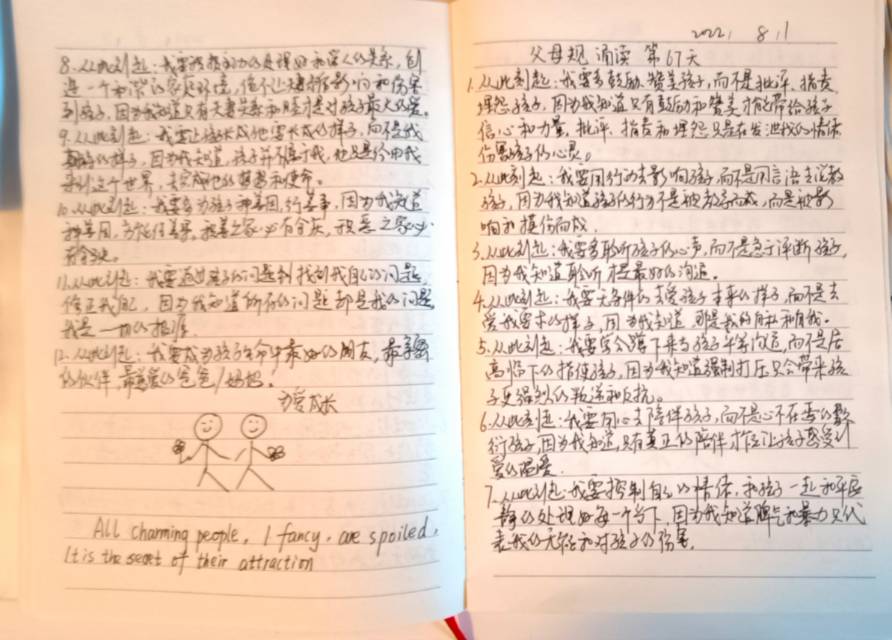 8.从此刻起:我要积极主动的处理好和家人的关系,创
造一个和谐的家庭环境,绝不让夫妻的影响和伤害
到孩子,因为我知道只有夫妻关系和睦才是对孩子最大的爱。
9.从此刻起:我要让孩子长成他要长成的样子,而不是我
的样子,因为我知道,孩子并不属于我,他只是经由我
来到这个世界,去完成他的梦想和使命。
10.从此刻起:我要多为孩子种善因,行善事,因为我知道
种善因,方能得善果。积善之家必有余庆,积恶之家必
有余殃。
11.从此刻起:我要通过孩子的问题找到我自己的问题,
修正我自己,因为我知道所有的问题都是我的问题
我是一切的根源.
12.从此刻起:我要成为孩子生命中最好的朋友,最亲密
的伙伴,最爸爸/妈妈.
为爱成长
All charming people, I fancy, are spoiled,
It is the secret of their attraction
2022, 8,1
父母规 诵读 第67天
1.从此刻起:我要多鼓励、赞美孩子,而不是批评、指责
埋怨孩子,因为我知道只有鼓励和赞美才能带给孩子
信心和力量,批评、指责和埋怨只是在发泄我的情绪
伤害孩子的心灵。
2.从此刻起:我要用行动去影响孩子,而不是用言语去说教
孩子,因为我知道孩子的行为不是被教导而成,而是被影
响和模仿而成.
3.从此刻起:我要多聆听孩子的心声,而不是急于评断孩子,
因为我知道聆听才是最好的沟通。
4.从此刻起:我要无条件的去爱孩子本来的样子,而不是去
爱我要求的样子,因为我知道,那是我的自私和自我。
5.从此刻起:我要学会蹲下来与孩子平等沟通,而不是居
高临下的指使孩子,因为我知道强制打压只会带来孩
子更强烈的叛逆和反抗。
6.从此刻起:我要用心去陪伴孩子,而不是心不在焉的敷
衍孩子,因为我知道,只有真正的陪伴才能让孩子感受到
爱的温暖.
7.从此刻起:我要控制自己的情绪,和孩子一起和平宁
静的处理好每一个当下,因为我知道脾气和暴力只代
表我的无能和对孩子的伤害.